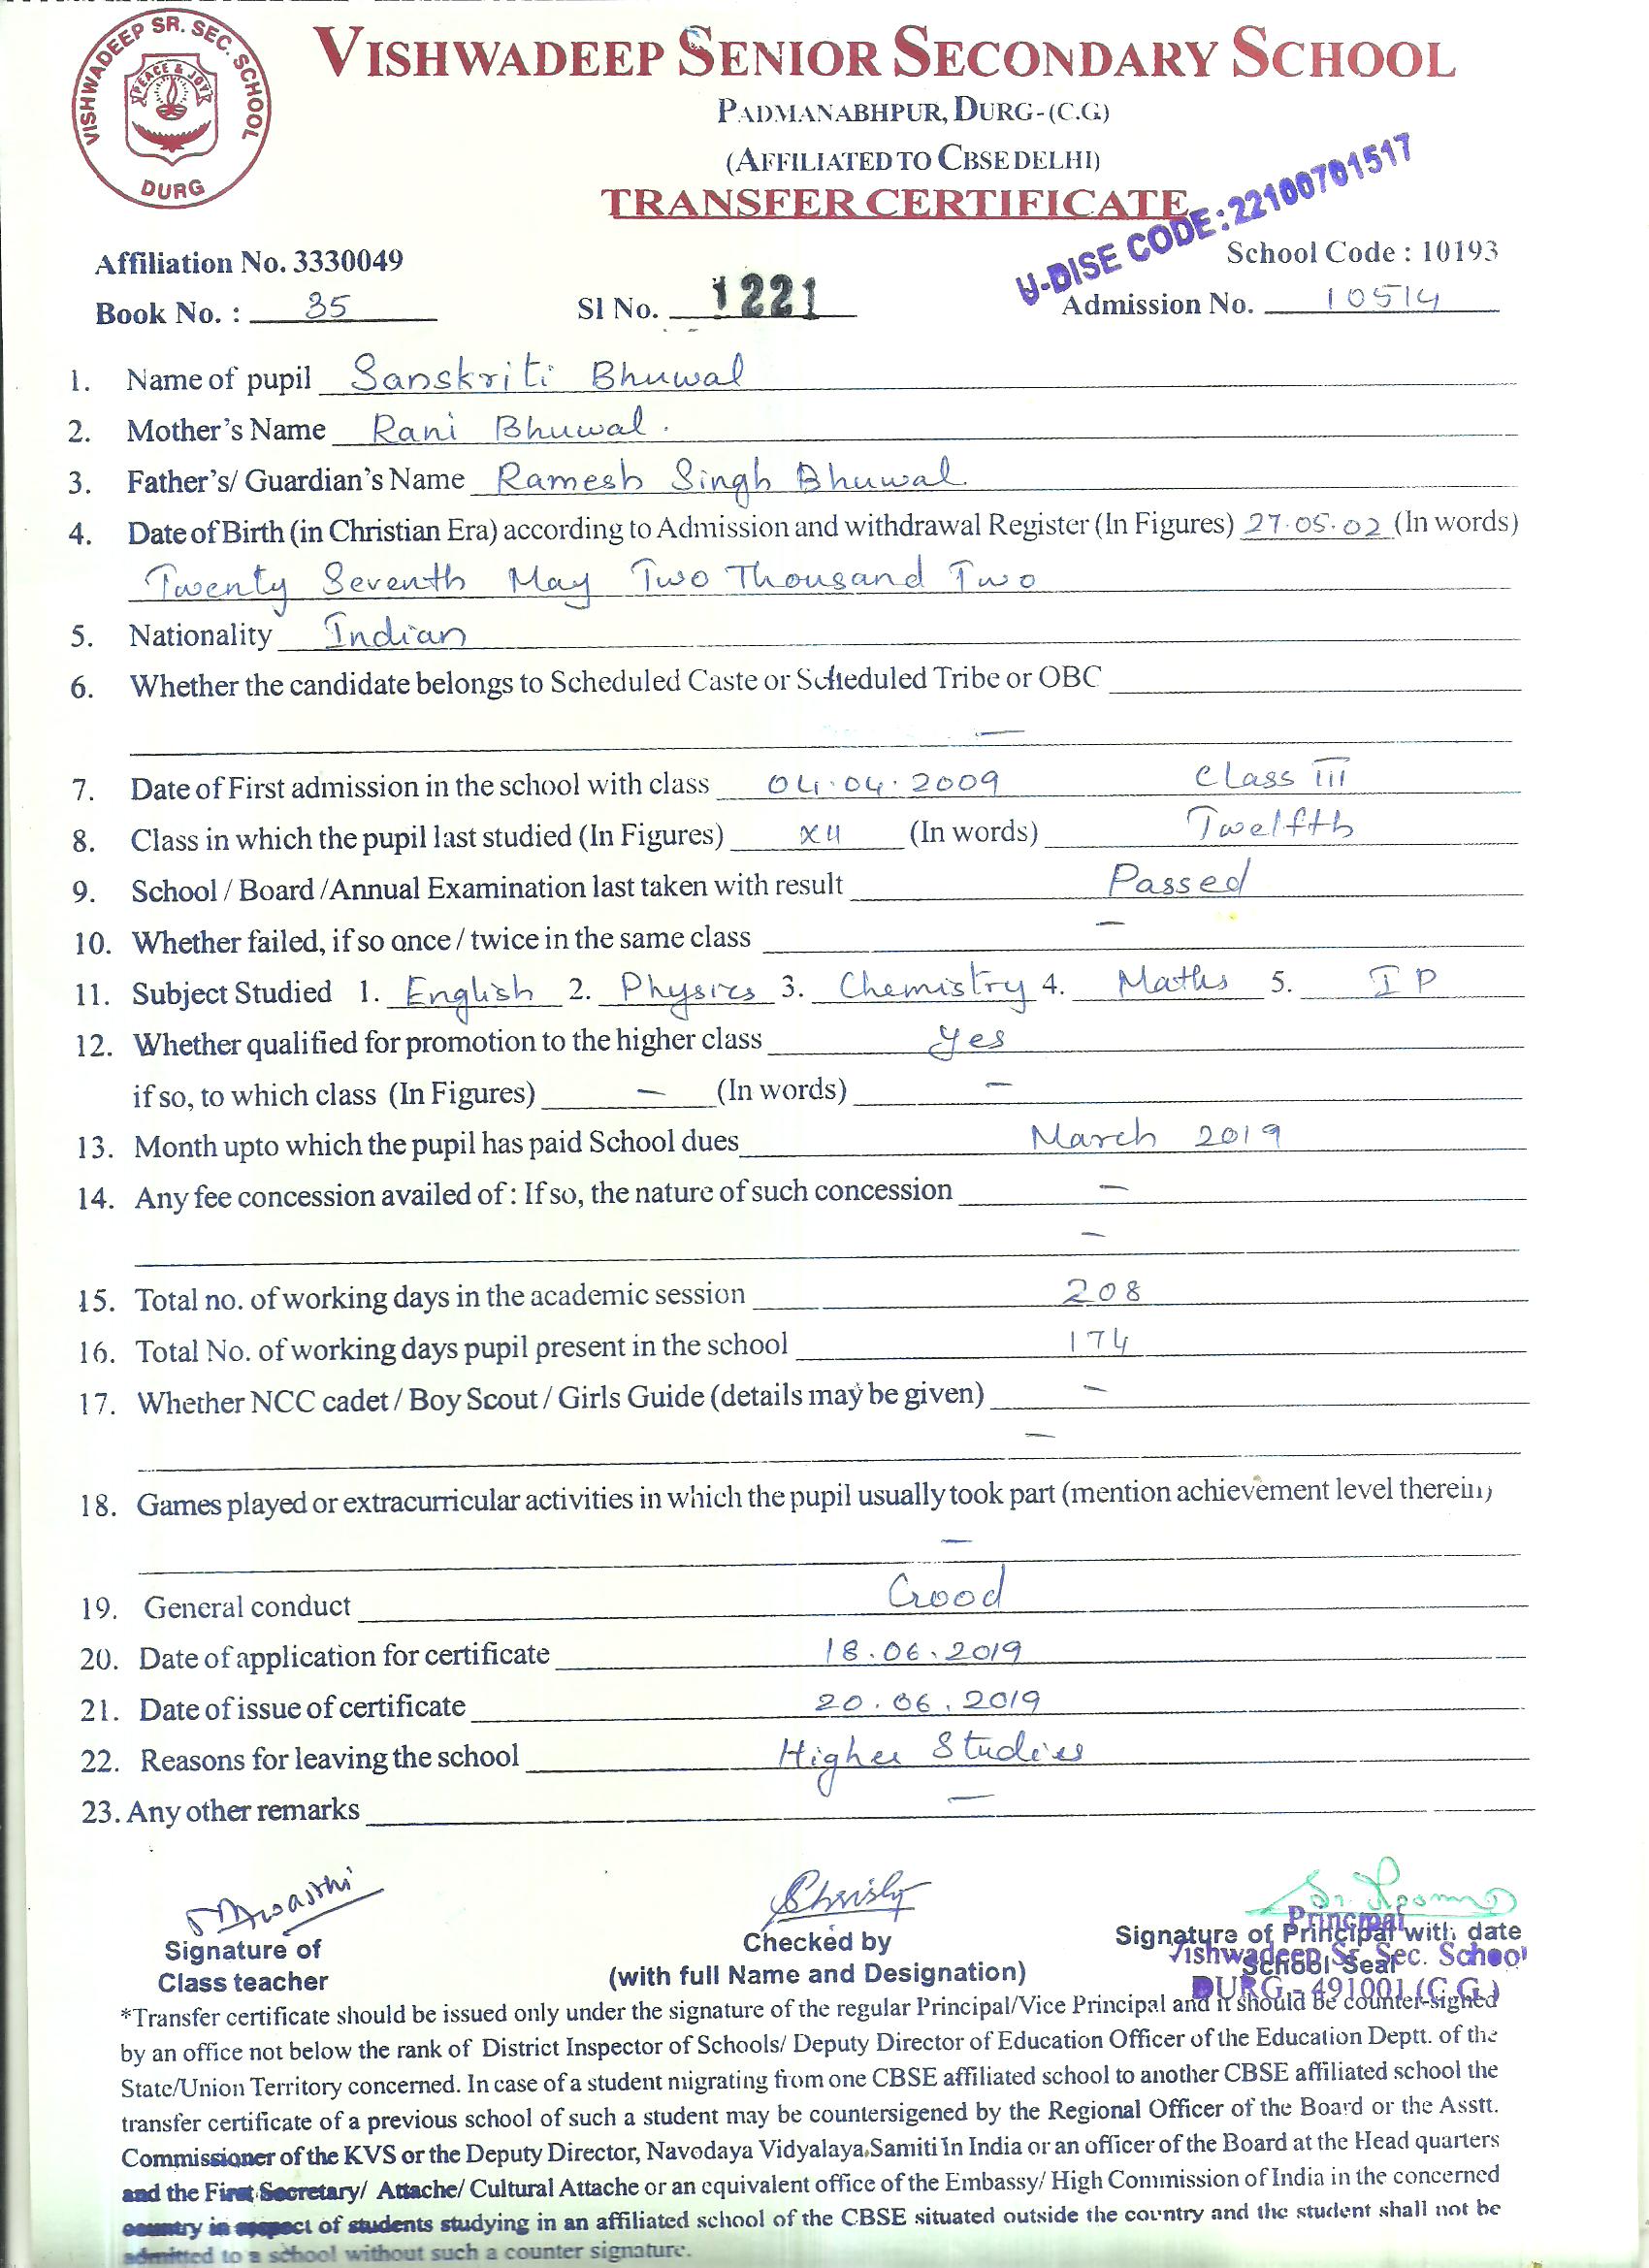 VISHWADEEP SR. SEC. SCHOOL
PEACE & JOY
DURG
VISHWADEEP SENIOR SECONDARY SCHOOL
PADMANABHPUR, DURG-(C.G)
(AFFILIATED TO CBSE DELHI)
TRANSFER CERTIFICATE
U-DISE CODE: 22100701517
Affiliation No. 3330049 School Code : 10193
Book No. : 35 Sl No. 1221 Admission No. 10514
1. Name of pupil Sanskriti Bhuwal
2. Mother's Name Rani Bhuwal.
3. Father's/ Guardian's Name Ramesh Singh Bhuwal
4. Date of Birth (in Christian Era) according to Admission and withdrawal Register (In Figures) 27.05.02 (In words)
Twenty Seventh May Two Thousand Two
5. Nationality Indian
6. Whether the candidate belongs to Scheduled Caste or Scheduled Tribe or OBC
—
7. Date of First admission in the school with class 04.04.2009 Class III
8. Class in which the pupil last studied (In Figures) XII (In words) Twelfth
9. School / Board /Annual Examination last taken with result Passed
10. Whether failed, if so once / twice in the same class —
11. Subject Studied 1. English 2. Physics 3. Chemistry 4. Maths 5. IP
12. Whether qualified for promotion to the higher class Yes
if so, to which class (In Figures) — (In words) —
13. Month upto which the pupil has paid School dues March 2019
14. Any fee concession availed of : If so, the nature of such concession —
—
15. Total no. of working days in the academic session 208
16. Total No. of working days pupil present in the school 174
17. Whether NCC cadet / Boy Scout / Girls Guide (details may be given) —
—
18. Games played or extracurricular activities in which the pupil usually took part (mention achievement level therein)
—
19. General conduct Good
20. Date of application for certificate 18.06.2019
21. Date of issue of certificate 20.06.2019
22. Reasons for leaving the school Higher Studies
23. Any other remarks —
Signature of Checked by Signature of Principal with date
Class teacher (with full Name and Designation) School Seal
Principal
Vishwadeep Sr. Sec. School
DURG - 491001 (C.G.)
*Transfer certificate should be issued only under the signature of the regular Principal/Vice Principal and it should be counter-signed
by an office not below the rank of District Inspector of Schools/ Deputy Director of Education Officer of the Education Deptt. of the
State/Union Territory concerned. In case of a student migrating from one CBSE affiliated school to another CBSE affiliated school the
transfer certificate of a previous school of such a student may be countersigened by the Regional Officer of the Board or the Asstt.
Commissioner of the KVS or the Deputy Director, Navodaya Vidyalaya Samiti In India or an officer of the Board at the Head quarters
and the First Secretary/ Attache/ Cultural Attache or an equivalent office of the Embassy/ High Commission of India in the concerned
country in respect of students studying in an affiliated school of the CBSE situated outside the country and the student shall not be
admitted to a school without such a counter signature.